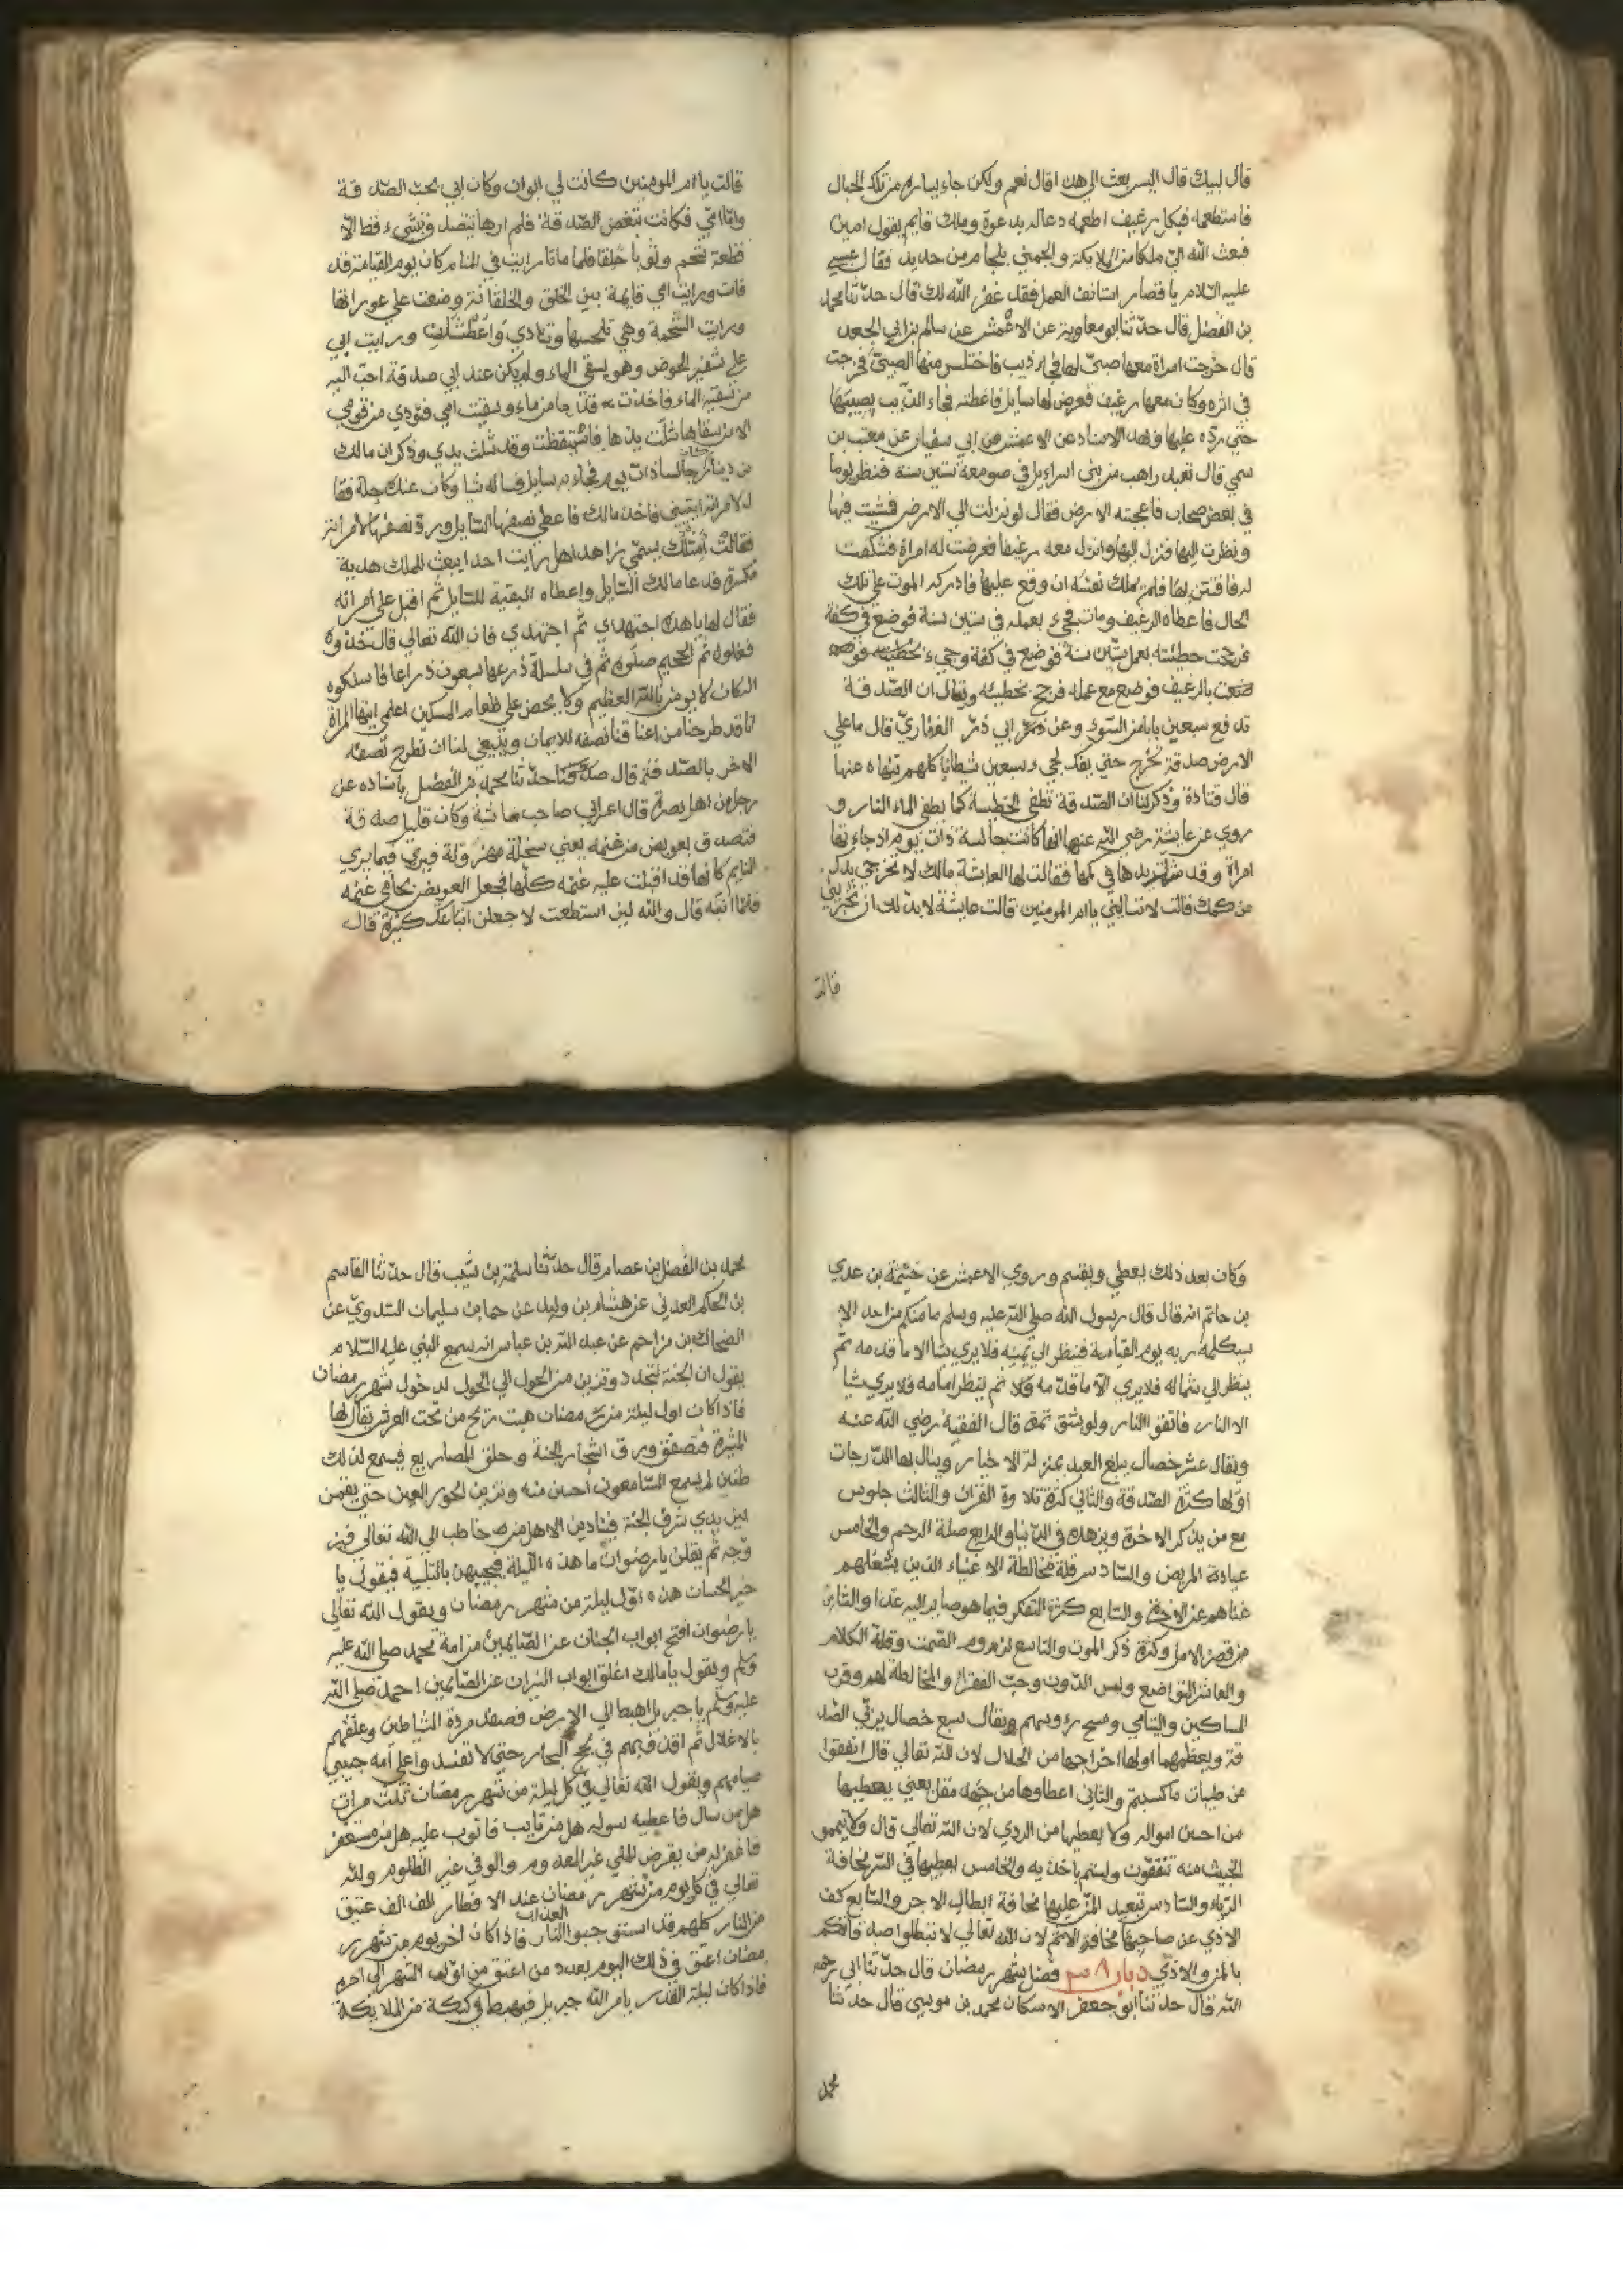 قال لبيك قال اليس بعث الي هذا قال نعم ولكن جاء سايل من تلك الجبال
فاستطعمه فبكل رغيف اطعمه دعا له بدعوة وملك قايم يقول امين
فبعث الله الي ملكا من الملايكة والجمني بلجام من حديد فقال عيسي
عليه السلام يا قصار استانف العمل فقد غفر الله لك قال حدثنا محمد
بن الفضل قال حدثنا ابو معاوية عن الاعمش عن سالم بن ابي الجعد
قال خرجت امراة معها صبي لها فجاء ذيب فاختلس منها الصبي فخرجت
في اثره وكان معها رغيف فعرض لها سايل فاعطته فجاء الذيب بصبيها
حتي رده عليها وبهذا الاسناد عن الاعمش عن ابي سفيان عن معتب بن
سمي قال تعبد راهب من بني اسراءيل في صومعة ستين سنة فنظر يوما
في بعض صحاب فاعجبته الارض فقال لو نزلت الي الارض فمشيت فيها
ونظرت اليها فنزل اليها وانزل معه رغيفا فعرضت له امراة فتكشفت
له فافتتن بها فلم يملك نفسه ان وقع عليها فادركه الموت علي تلك
الحال فاعطاه الرغيف ومات فجيء بعمله في ستين سنة فوضع في كفة
فرجحت خطيئته بعمل ستين سنة فوضع في كفة وجيء بخطيئته فوضعت
ضعت بالرغيف فوضع مع عمله فرجح بخطيئه ويقال ان الصدقة
تدفع سبعين بابا من السوء وعن ابي ذر الغفاري قال ما علي
الارض صدقة تخرج حتي يفك لحيء سبعين شيطانا كلهم ينهاه عنها
قال قتادة وذكر لنا ان الصدقة تطفي الخطيية كما يطفي الماء النار و
روي عن عايشة رضي الله عنها انها كانت جالسة ذات يوم اذ جاءتها
امراة وقد شلت يدها في كمها فقالت لها العايشة مالك لا تخرجي يدك
من كمك قالت لا تساليني يا ام المومنين قالت عايشة لا بد لك ان تخبريني
قالت
قالت يا ام المومنين كانت لي ابوان وكان ابي يحب الصدقة
واما امي فكانت تبغض الصدقة فلم ارها تتصدق بشيء فقط الا
قطعة شحم وثوبا خلقا فلما ماتا رايت في المنام كان يوم القيامة قد
قامت ورايت امي قايمة بين الخلق والخلقانة وضعت علي عوراتها
ورايت الشحمة وهي تلحسها وتنادي واعطشاه ورايت ابي
علي شفير الحوض وهو يسقي الماء ولم يكن عند ابي صدقة احب اليه
من سقيه الماء فاخذت قدحا من ماء وسقيت امي فنودي من فوقي
الا من سقاها شلت يدها فاستيقظت وقد شلت يدي وذكر ان مالك
بن دينار جالسا ذات يوم فجاءه سايل فساله شيا وكان عنده جلة فقا
لامراته ايتيني فاخذ مالك فاعطي نصفها السايل ورد نصفها لامراته
فقالت امثلك يسمي زاهدا هل رايت احدا يبعث للملك هدية
مكسرة فدعا مالك السايل واعطاه البقية للسايل ثم اقبل علي امراته
فقال لها يا هذه اجتهدي ثم اجتهدي فان الله تعالي قال خذوه
فغلوه ثم الجحيم صلوه ثم في سلسلة ذرعها سبعون ذراعا فاسلكوه
انه كان لا يومن بالله العظيم ولا يحض علي طعام المسكين اعلمي ايتها المراة
انا قد طرحنا من اعناقنا نصفه للايمان وينبغي لنا ان نطرح نصفه
الاخر بالصدقة قال حدثنا محمد بن الفضل باسناده عن
رجل من اهل بصرة قال اعرابي صاحب ماشية وكان قليل صدقة
فتصدق بعويض من غنمه يعني سخلة مهزولة فيري فيما يري
النايم كانها قد اقبلت عليه غنمه كلها فجعل العويض يحامي عنه
فلما انتبه قال والله لين استطعت لاجعلن اتباعك كثيرة قال
وكان بعد ذلك يعطي ويقسم وروي الاعمش عن خيثمة بن عدي
بن حاتم انه قال قال رسول الله صلي الله عليه وسلم ما منكم من احد الا
سيكلمه ربه يوم القيامة فينظر الي يمينه فلا يري شيا الا ما قدمه ثم
ينظر الي شماله فلا يري الا ما قدمه ثم ينظر امامه فلا يري شيا
الا النار فاتقوا النار ولو بشق تمرة قال الفقيه رضي الله عنه
ويقال عشر خصال يبلغ العبد بمنزلة الاخيار وينال بها الدرجات
اولها كثرة الصدقة والثاني كثرة تلاوة القران والثالث جلوس
مع من يذكر الاخرة ويزهده في الدنيا والرابع صلة الرحم والخامس
عيادة المريض والسادس قلة مخالطة الاغنياء الذين يشغلهم
غناهم عن الاخرة والسابع كثرة التفكر فيما هو صاير اليه غدا والثامن
من قصر الامل وكثرة ذكر الموت والتاسع لزوم الصمت وقلة الكلام
والعاشر التواضع ولبس الدون وحب الفقراء والمخالطة لهم وقرب
المساكين واليتامي ومسح رءوسهم ويقال سبع خصال يزكي الصد
قة ويعظمهما اولها اخراجها من الحلال لان الله تعالي قال انفقوا
من طيبات ما كسبتم والثاني اعطاوها من جهد مقل يعني يعطيها
من احسن امواله ولا يعطيها من الردي لان الله تعالي قال ولا تيممو
الخبيث منه تنفقون ولستم باخذيه والخامس يعطيها في السر مخافة
الرياء والسادس تبعيد المن عليها مخافة ابطال الاجر والسابع كف
الاذي عن صاحبها مخافة الاثم لان الله تعالي لا تبطلوا صدقاتكم
بالمن والاذي فضل شهر رمضان قال حدثنا ابي رحمه
الله قال حدثنا ابو جعفر الاسكان محمد بن موسي قال حدثنا
محمد
محمد بن الفضل بن عصام قال حدثنا سلمة بن شبيب قال حدثنا القاسم
بن الحكم العدني عن هشام بن وليد عن حما بن سليمان السدوي عن
الضحاك بن مزاحم عن عبد الله بن عباس انه سمع النبي عليه السلام
يقول ان الجنة لتجدد وتزين من الحول الي الحول لدخول شهر رمضان
فاذا كان اول ليلة من رمضان هبت ريح من تحت العرش يقال لها
المثيرة فتصفق ورق اشجار الجنة وحلق المصاريع فيسمع لذلك
طنين لم يسمع السامعون احسن منه وتزين الحور العين حتي يقمن
بين يدي شرف الجنة فينادين الا هل من خاطب الي الله تعالي فيز
وجه ثم يقلن يا رضوان ما هذه الليلة فيجيبهن بالتلبية فيقول يا
خير الحسان هذه اول ليلة من شهر رمضان ويقول الله تعالي
يا رضوان افتح ابواب الجنان عن الصايمين من امة محمد صلي الله عليه
وسلم ويقول يا مالك اغلق ابواب النيران عن الصايمين احمد صلي الله
عليه وسلم يا جبريل اهبط الي الارض فصفد مردة الشياطين وغلهم
بالاغلال ثم اقذفهم في لجج البحار حتي لا تفسد واعلي امة حبيبي
صيامهم ويقول الله تعالي في كل ليلة من شهر رمضان ثلث مرات
هل من سال فاعطيه سوله هل من تايب فاتوب عليه هل من مستغفر
فاغفر له من يقرض الملي غير المعدوم والوفي غير الظلوم ولله
تعالي في كل يوم من شهر رمضان عند الافطار الف الف عتيق
من النار كلهم قد استوجبوا العذاب فاذا كان اخر يوم من شهر ر
مضان اعتق في ذلك اليوم بعدد من اعتق من اول الشهر الي اخره
فاذا كان ليلة القدر يامر الله جبريل فيهبط في كبكبة من الملايكة